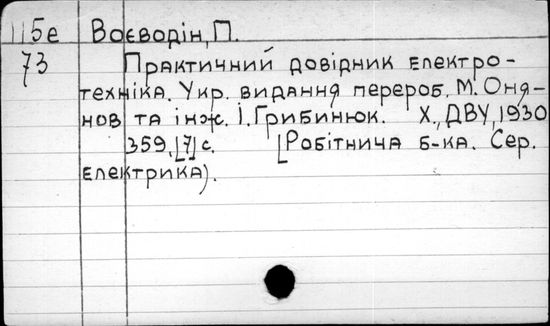 115е Воєводін, П.
73 Практичний довідник електро-
техніка. Укр. видання перероб. М. Оня-
нов та інж. І. Грибинюк. Х., ДВУ, 1930
359. [7] с. [Робітнича б-ка. Сер.
електрика).